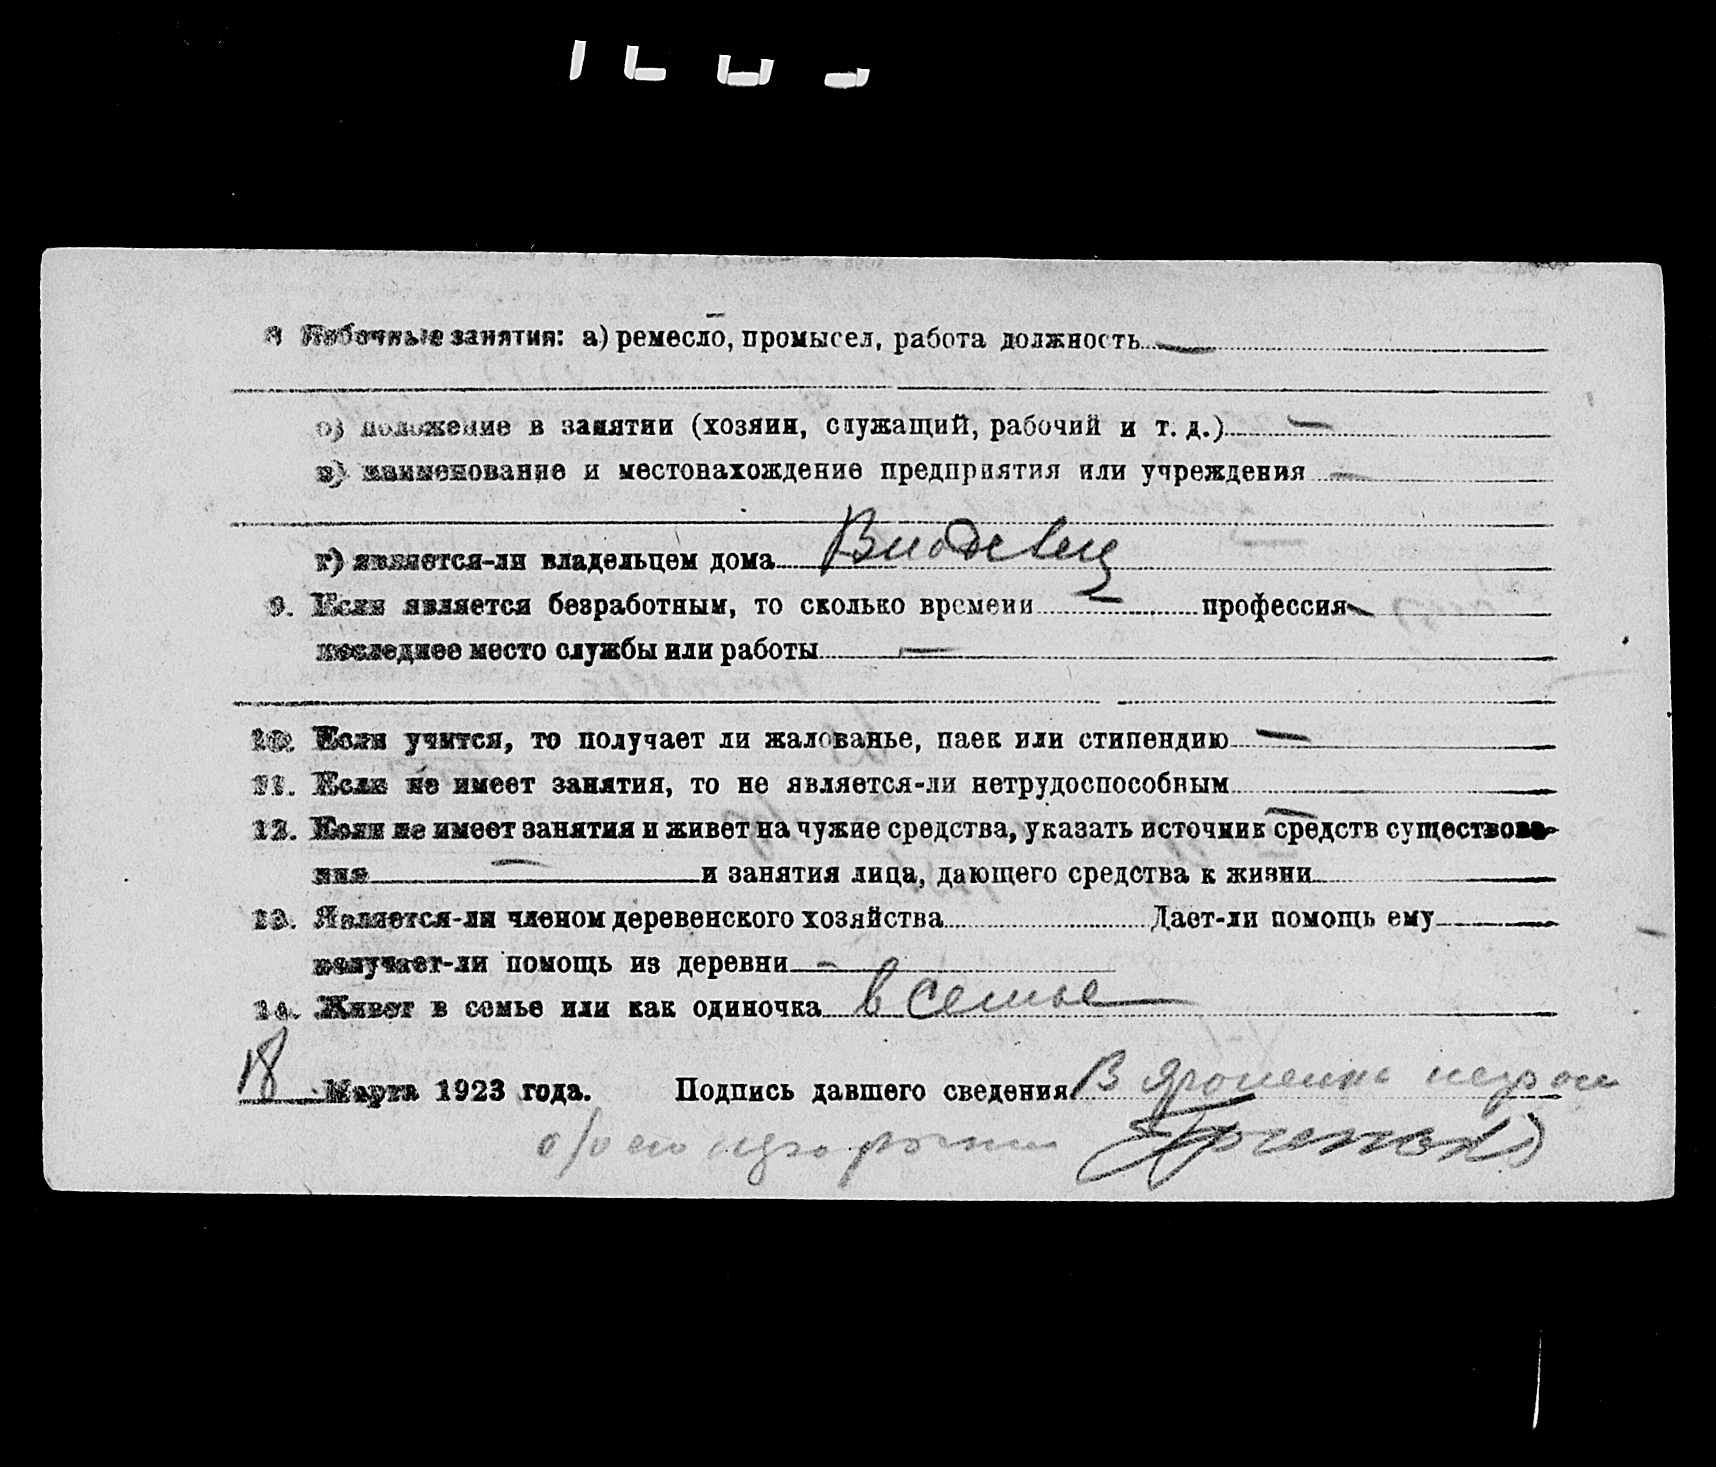 8 Побочные занятия: а) ремесло, промысел, работа должность
б) положение в занятии (хозяин, служащий, рабочий и т. д.)
в) наименование и местонахождение предприятия или учреждения
г) является-ли владельцем дома Владелец
9. Если является безработным, то сколько времени профессия
последнее место службы или работы
10. Если учится, то получает ли жалованье, паек или стипендию
11. Если не имеет занятия, то не является-ли нетрудоспособным
12. Если не имеет занятия и живет на чужие средства, указать источник средств существова-
ния и занятия лица, дающего средства к жизни
13. Является-ли членом деревенского хозяйства Дает-ли помощь ему
получает-ли помощь из деревни
14. Живет в семье или как одиночка в семье
18 Марта 1923 года. Подпись давшего сведения